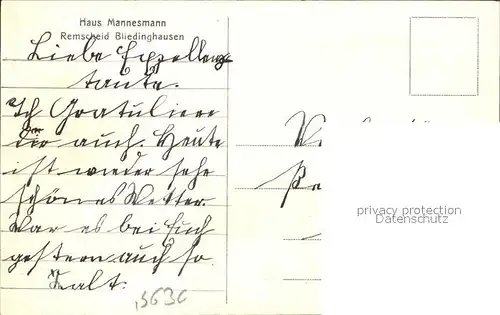 Haus Mannesmann
Remscheid Bliedinghausen
Liebe Exzellenz
tante.
Ich Gratuliere
Dir auch. Heute
ist wieder sehr
schönes Wetter
War es bei Euch
gestern auch so
kalt.
privacy protection
Datenschutz